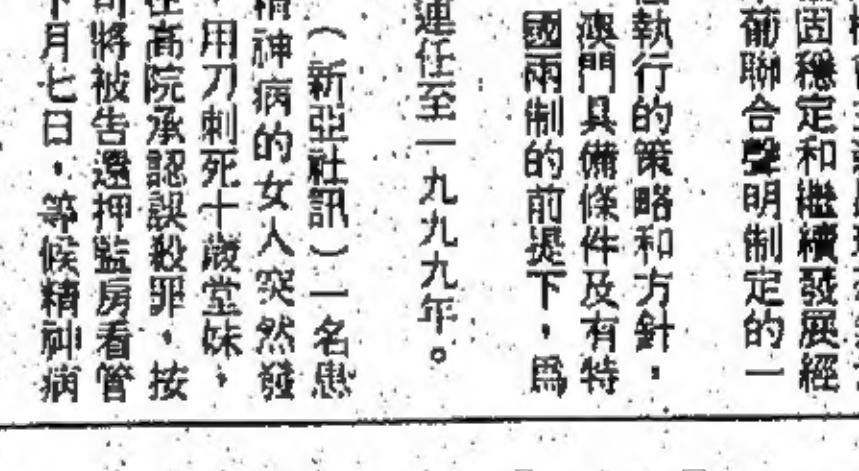 固穩定和繼續發展經
葡聯合聲明制定的一
執行的策略和方針，
澳門具備條件及有特
國兩制的前提下，爲
連任至一九九九年。
（新亞社訊）一名患
精神病的女人突然發
，用刀刺死十歲堂妹，
在高院承認誤殺罪，按
將被告還押監房看管
月七日，等候精神病